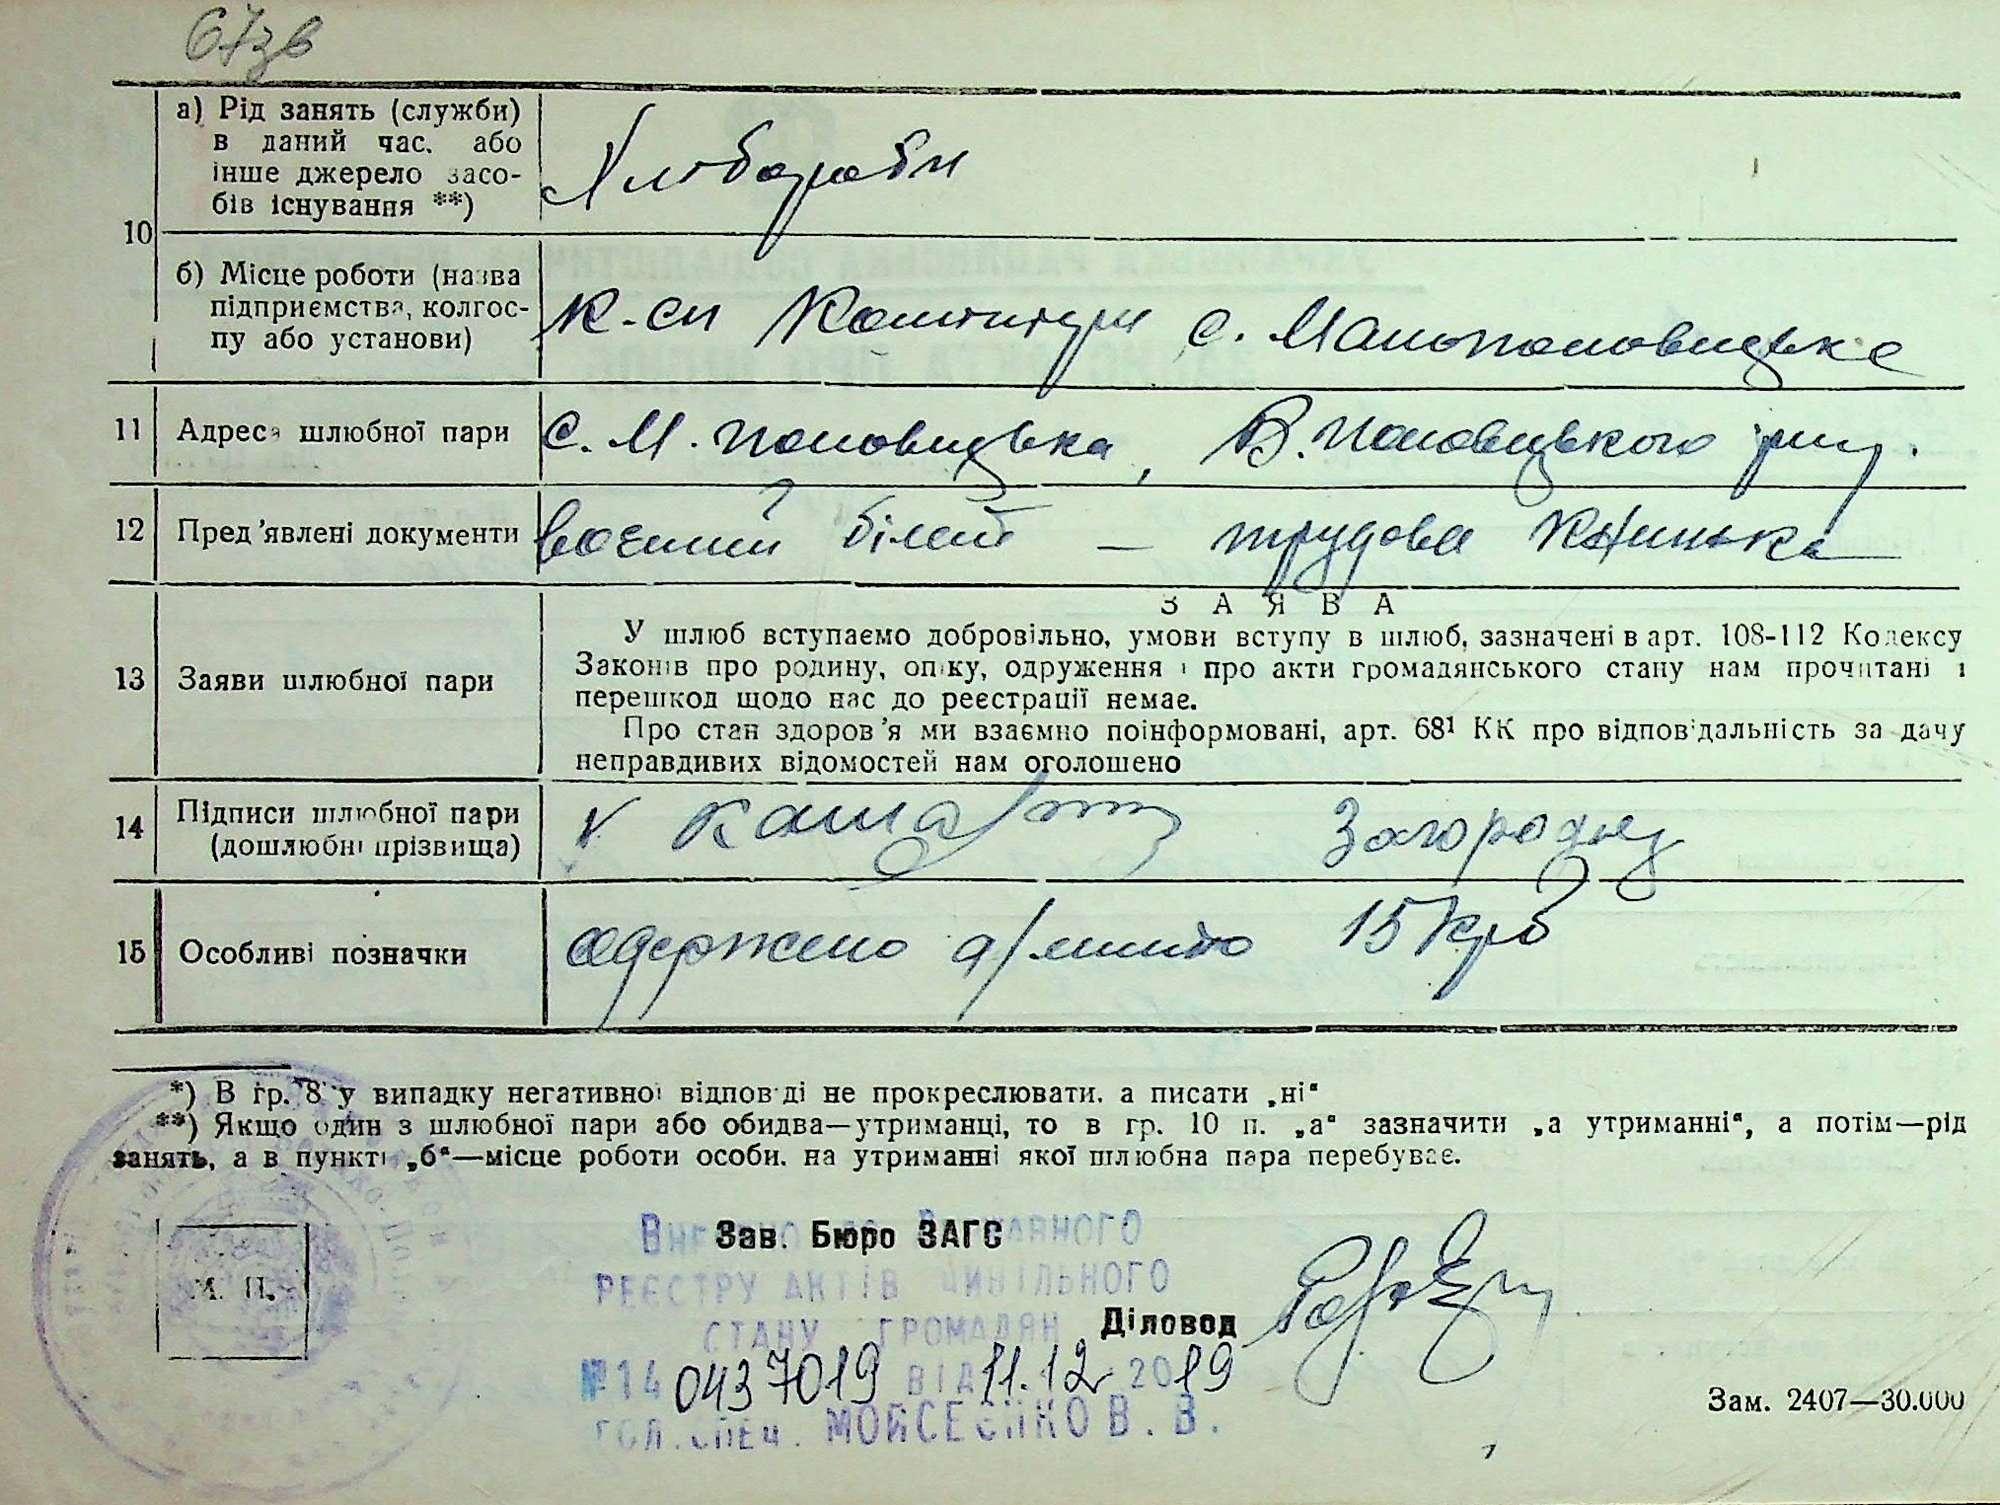 67зв
10
а) Рід занять (служби)
в даний час. або
інше джерело засо-
бів існування **)
Хлібороби
б) Місце роботи (назва
підприємства, колгос-
пу або установи)
к-сп с. Малополовецьке
11 Адреса шлюбної пари
с. М. половецька, В. Половецького
12 Пред'явлені документи
воєний білет — трудова книжка
13 Заяви шлюбної пари
ЗАЯВА
У шлюб вступаємо добровільно, умови вступу в шлюб, зазначені в арт. 108-112 Кодексу
Законів про родину, опіку, одруження і про акти громадянського стану нам прочитані і
перешкод щодо нас до реєстрації немає.
Про стан здоров'я ми взаємно поінформовані, арт. 68¹ КК про відповідальність за дачу
неправдивих відомостей нам оголошено
14 Підписи шлюбної пари
(дошлюбні прізвища)
Загородня
15 Особливі позначки
одержено д/мито 15 крб
*) В гр. 8 у випадку негативної відповіді не прокреслювати. а писати „ні“
**) Якщо один з шлюбної пари або обидва—утриманці, то в гр. 10 п. „а“ зазначити „а утриманні“, а потім—рід
занять, а в пункті „б“—місце роботи особи. на утриманні якої шлюбна пара перебуває.
М. П.
Зав. Бюро ЗАГС
Внесено до Державного
реєстру актів цивільного
стану громадян
Діловод
№14 0437019 від 11.12 2019
гол.спец. Мойсеєнко В. В.
Зам. 2407—30.000